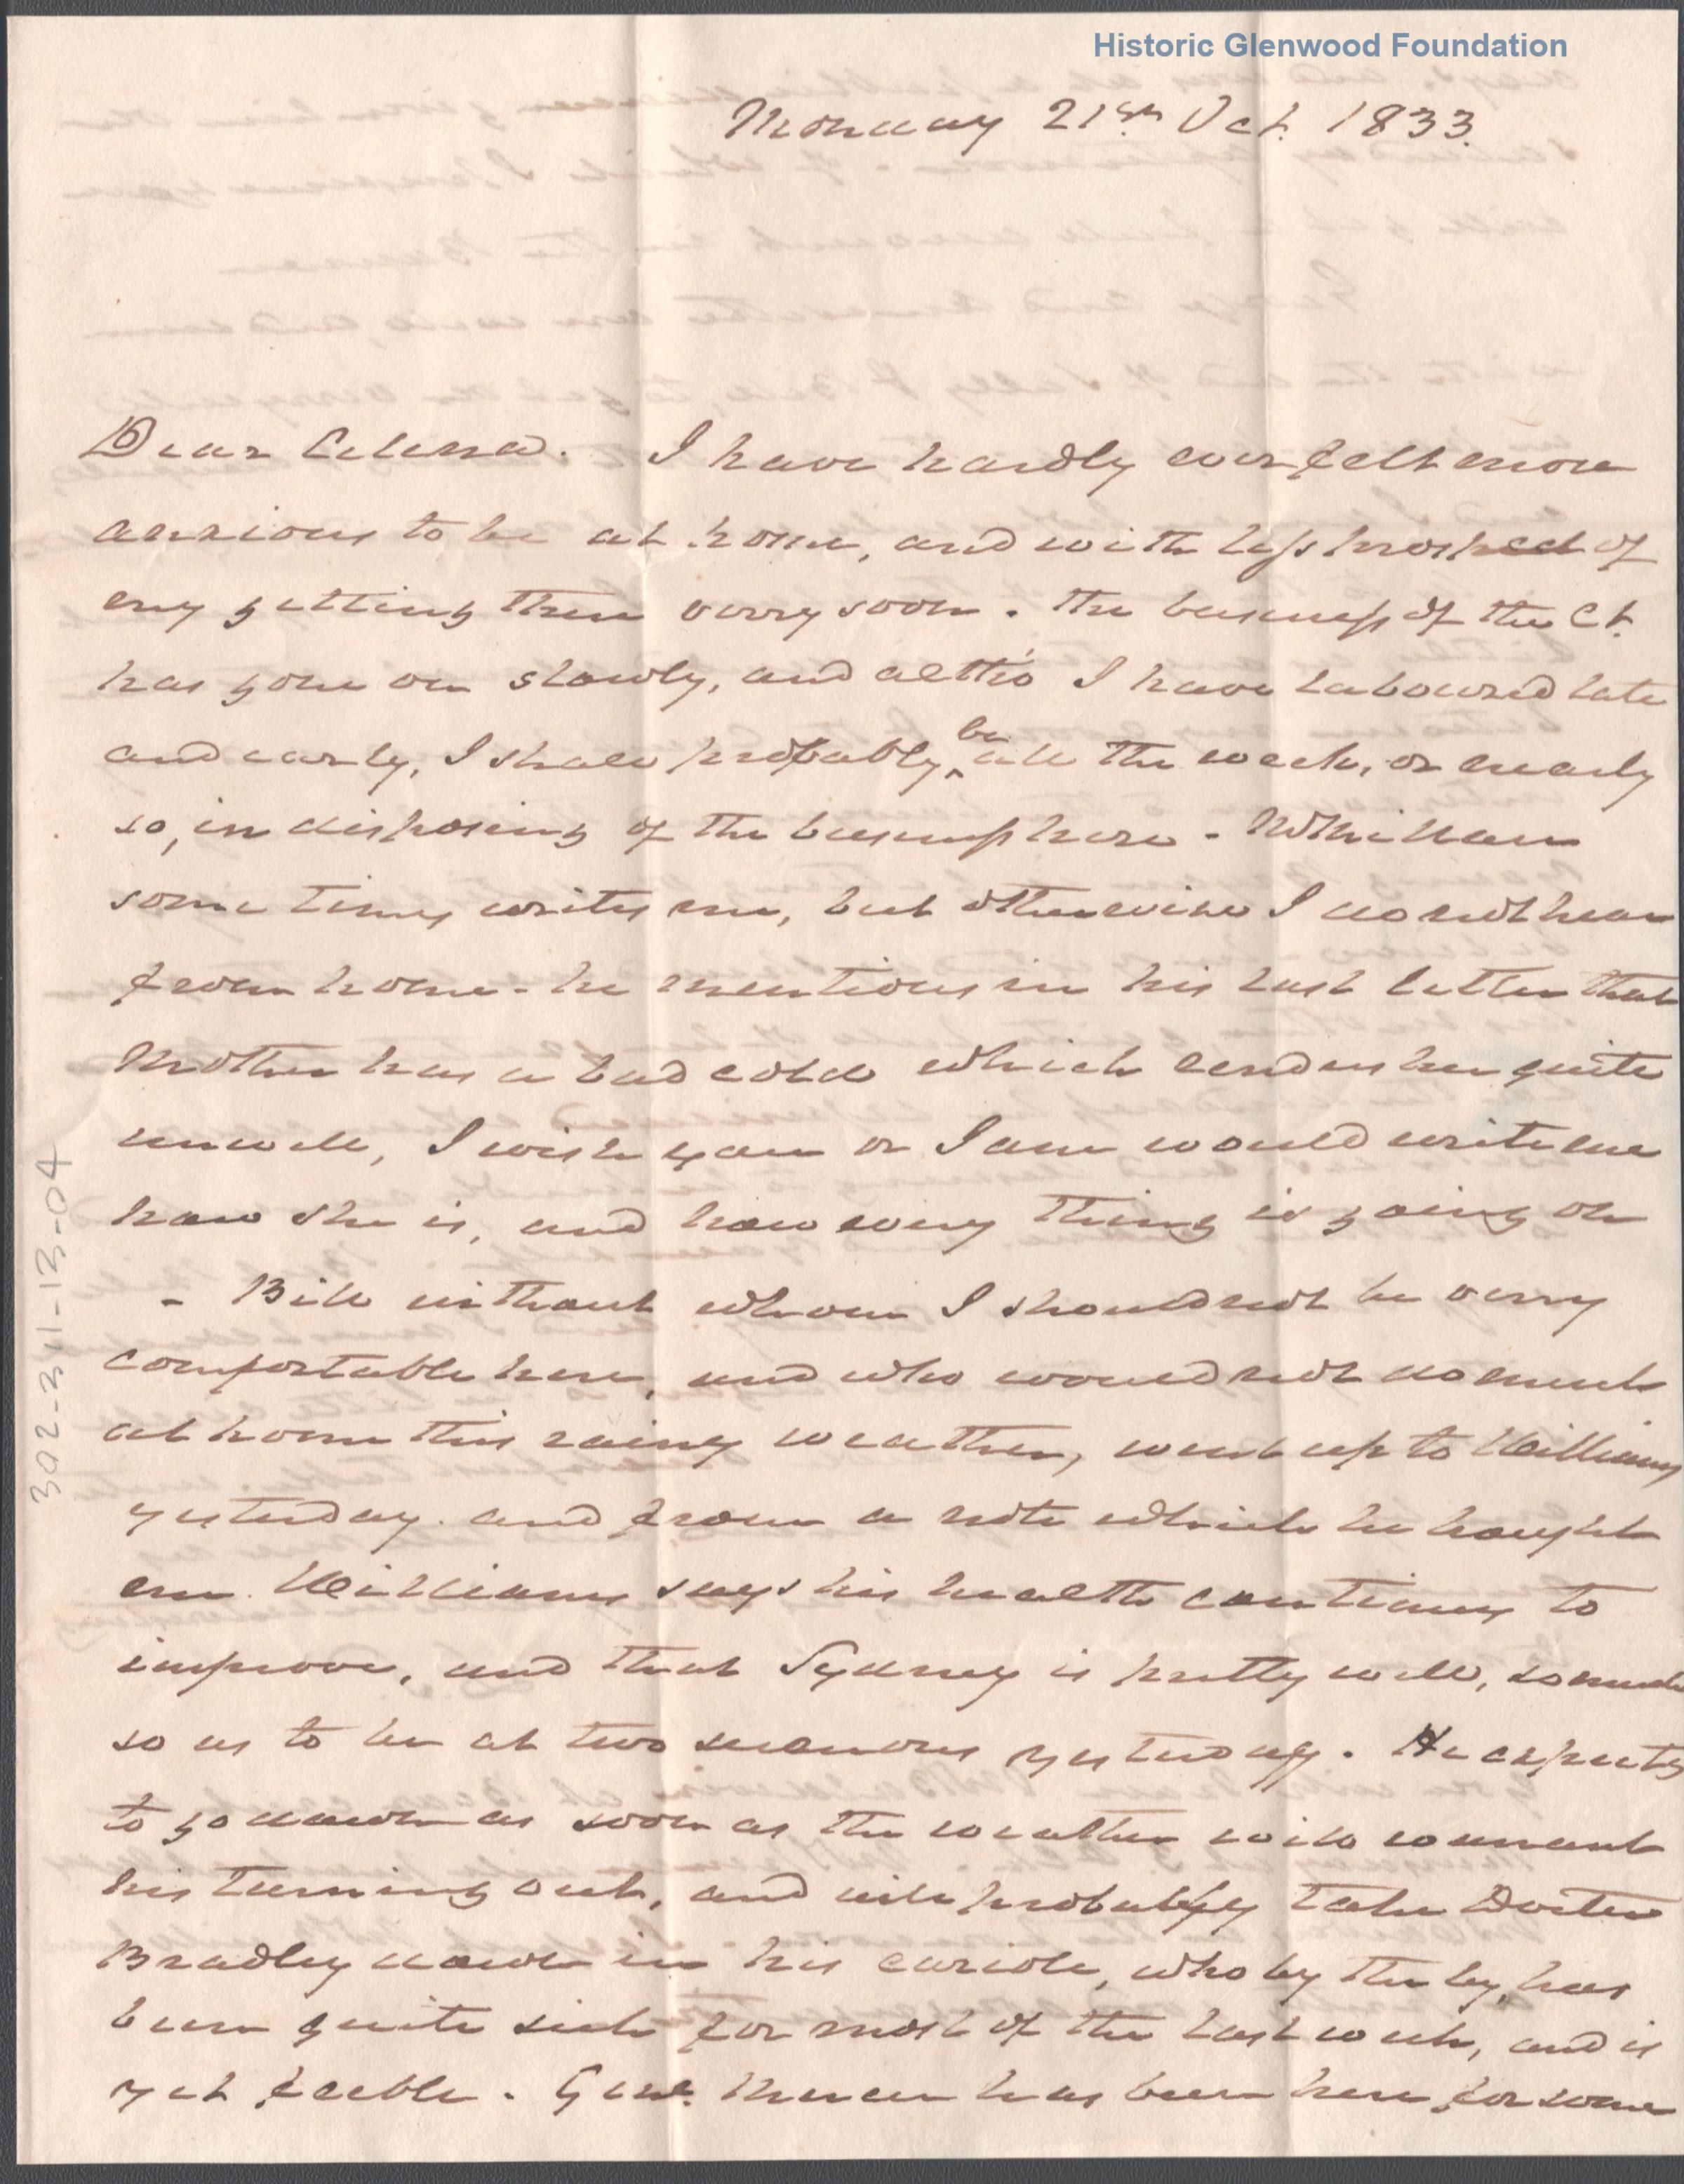 Historic Glenwood Foundation
Monday 21st Oct. 1833.
Dear I have hardly ever felt more
anxious to be at home, and with less prospect of
my getting there very soon. The business of the Ct.
has gone on slowly, and altho' I have laboured late
and early, I shall probably be all the week, or nearly
so, in disposing of the business here -
some times writes me, but otherwise I do not hear
from home - he mentions in his last letter that
Mother has a bad cold which renders her quite
unwell, I wish you or Jane would write me
how she is, and how every thing is going on
- Bill without whom I should not be very
comfortable here, and who would not do much
at home this rainy weather, went up to Williams
yesterday. and from a note which he bought
me Williams says his health continues to
improve, and that Sydney is pretty well, so much
so as to be at two sermons yesterday. He expects
to go down as soon as the weather will warrant
his turning out, and will probably take Doctor
Bradley down in his cariole, who by the by, has
been quite sick for most of the last week, and is
yet feeble. Genl. Mercer has been here for some
302-311-13-04